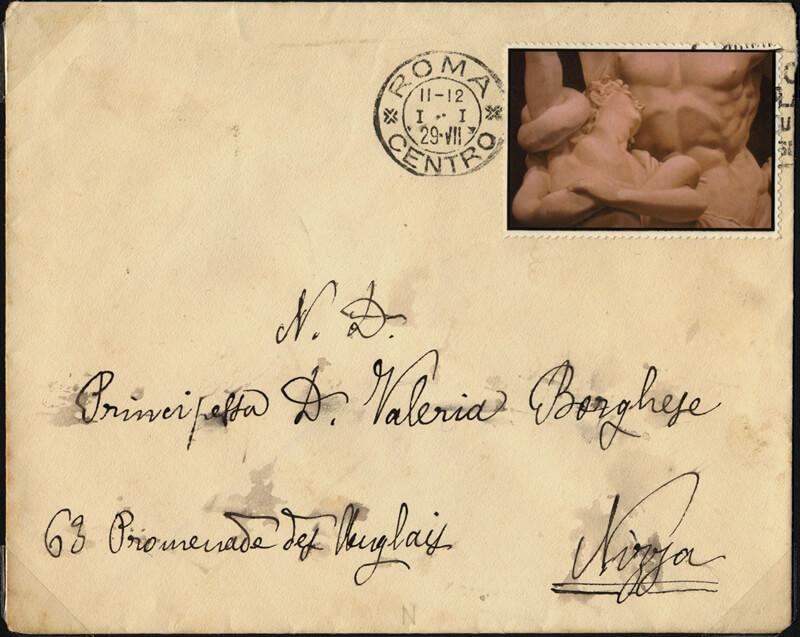 ROMA
11-12
I · · I
29·VII
CENTRO
N. D.
Principessa D. Valeria Borghese
63 Promenade des Anglais
Nizza
N